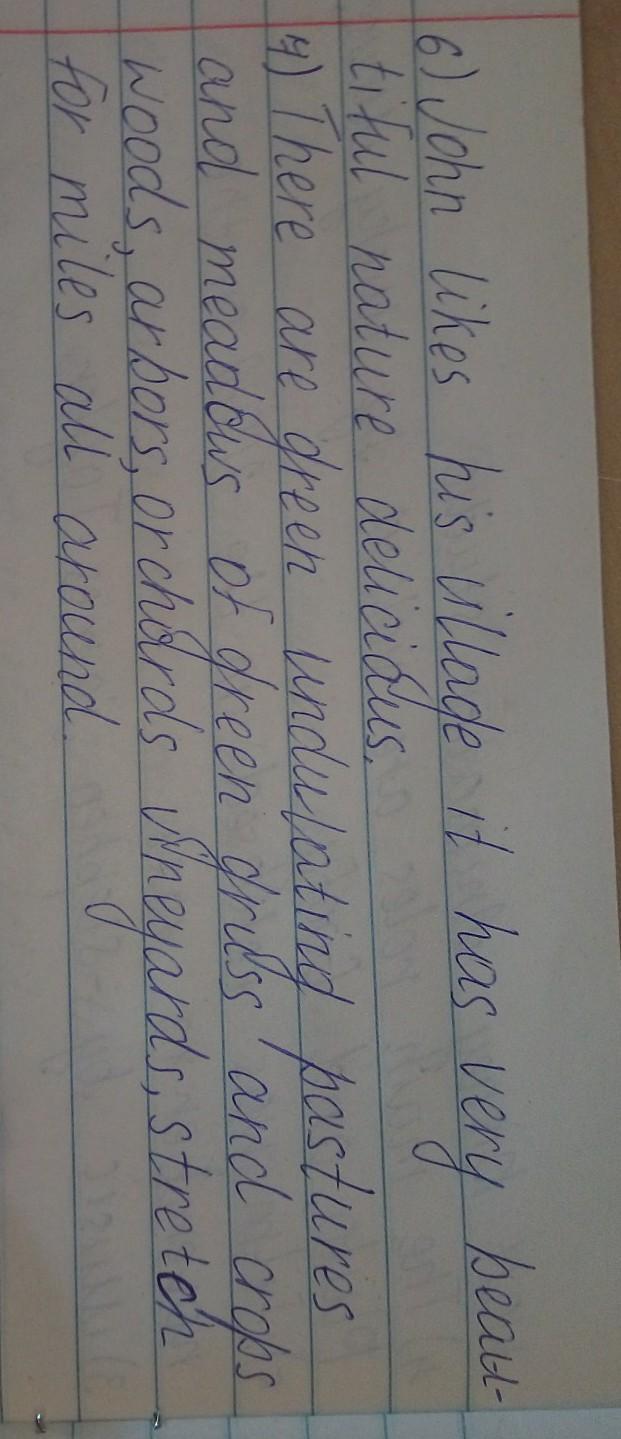 6) John likes his village it has very beau-
tiful nature delicious.
7) There are green undulating pastures
and meadows of green grass and crops
woods, arbors, orchards vineyards, stretch
for miles all around.